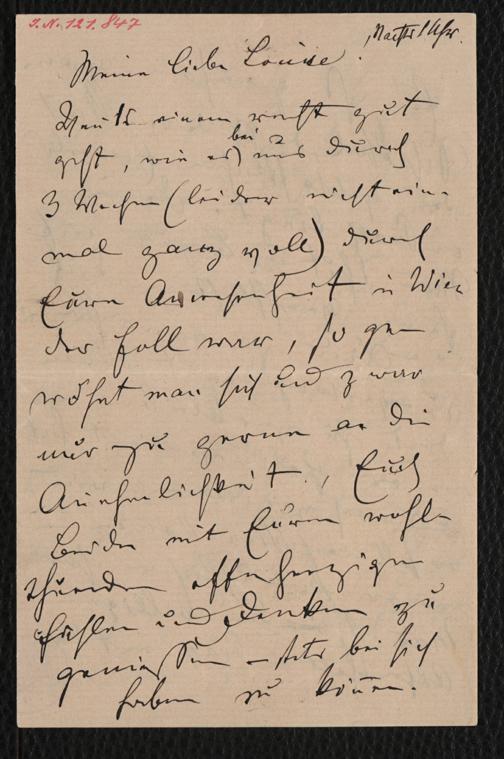 I.N. 121.847
Nachts 1 Uhr.
Meine liebe Louise!
Wenn's einem recht gut
geht, wie es bei uns durch
3 Wochen (leider nicht ein-
mal ganz voll) durch
Eure Anwesenheit in Wien
der Fall war, so ge-
wöhnt man sich und zwar
nur zu gerne an die
Annehmlichkeit, Euch
Beide mit Eurem wohl-
thuenden offenherzigen
Fühlen und Denken zu
geniessen – stets bei sich
haben zu können.